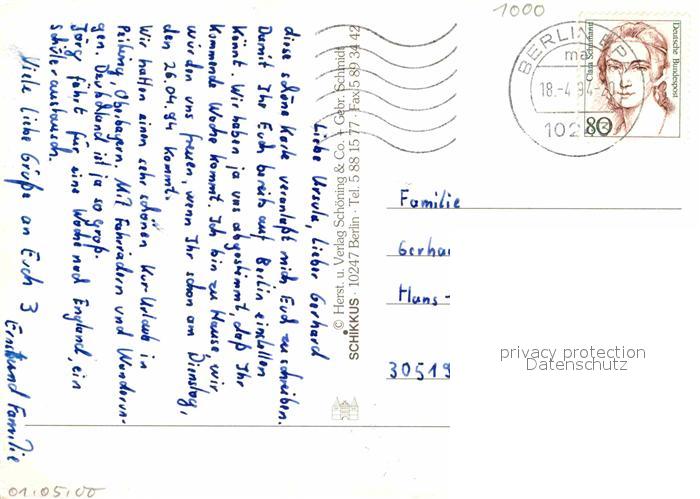 1000
BERLIN
18.-4.94-20
102
Clara Schumann
Deutsche Bundespost
80
Liebe Ursula, Lieber Gerhard
diese schöne Karte veranlaßt mich Euch zu schreiben.
Damit Ihr Euch bereits auf Berlin einstellen
Könnt. Wir haben ja vas abgestimmt, daß Ihr
Kommende Woche kommt. Ich bin zu Hause, wir
würden uns freuen, wenn Ihr schon am Dienstag,
den 26.04.94 kommt.
Wir hatten einen sehr schönen Kur-Urlaub in
Peißing Oberbayern. Mit Fahrrädern und Wanderun-
gen. Deutschland ist ja so groß.
Jörg fährt für eine Woche nach England, ein
Schüleraustausch.
Viele liebe Grüße an Euch 3
Ernst und Familie
© Herst. u. Verlag Schöning & Co. + Gebr. Schmidt
SCHIKKUS · 10247 Berlin · Tel. 5 88 15 77 · Fax 5 89 34 42
Familie
Gerha
Hans-
30519
privacy protection
Datenschutz
01.05.00